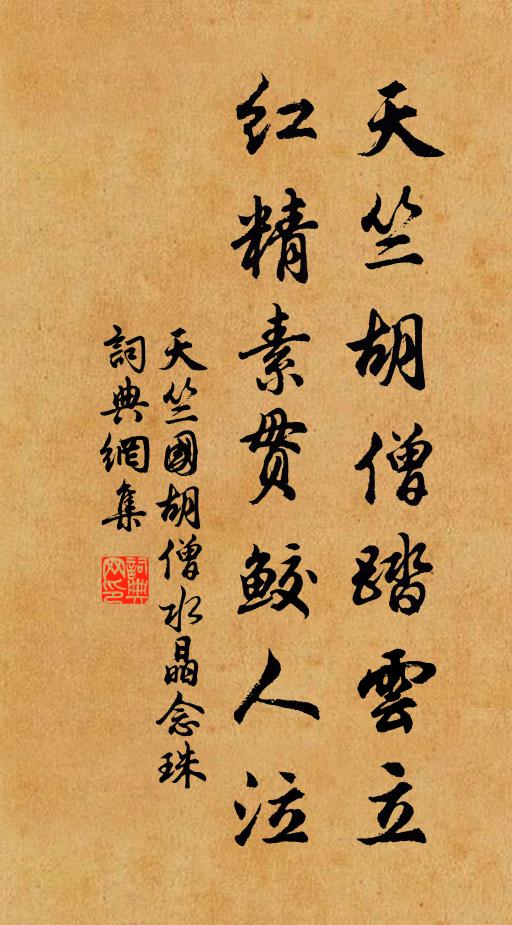 天竺胡僧踏雲立
紅精素貫鮫人泣
天竺國胡僧水晶念珠
詞典網集
詞典網印